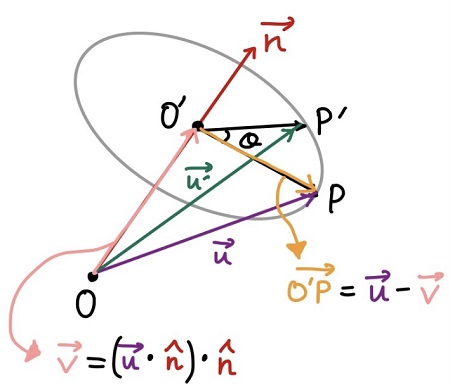 n⃗
O' P'
θ
u⃗'
P
u⃗
O
O'P⃗ = u⃗ - v⃗
v⃗ = (u⃗ · n̂) · n̂